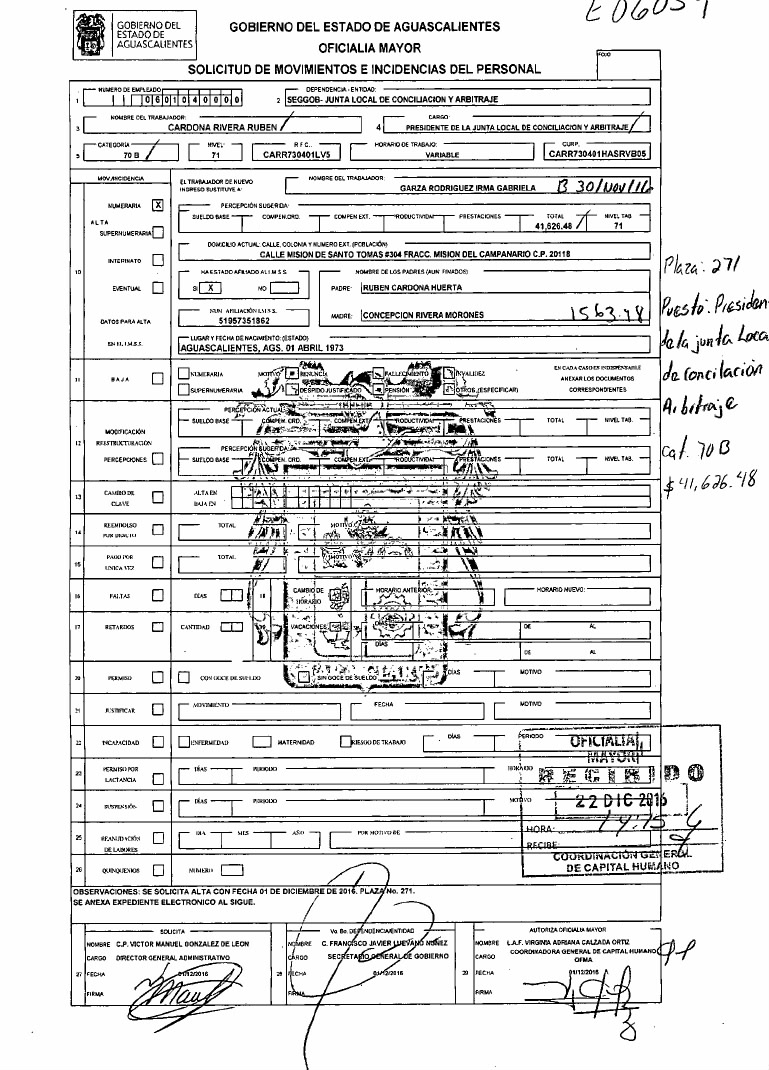 E06059
GOBIERNO DEL
ESTADO DE
AGUASCALIENTES
GOBIERNO DEL ESTADO DE AGUASCALIENTES
OFICIALIA MAYOR
SOLICITUD DE MOVIMIENTOS E INCIDENCIAS DEL PERSONAL
FOLIO
1 NUMERO DE EMPLEADO 0601040000
2 DEPENDENCIA - ENTIDAD: SEGGOB- JUNTA LOCAL DE CONCILIACION Y ARBITRAJE
3 NOMBRE DEL TRABAJADOR: CARDONA RIVERA RUBEN
4 CARGO: PRESIDENTE DE LA JUNTA LOCAL DE CONCILIACION Y ARBITRAJE
5 CATEGORÍA 70 B NIVEL 71 R.F.C. CARR730401LV5 HORARIO DE TRABAJO: VARIABLE CURP. CARR730401HASRVB05
MOV./INCIDENCIA
EL TRABAJADOR DE NUEVO INGRESO SUSTITUYE A: NOMBRE DEL TRABAJADOR: GARZA RODRIGUEZ IRMA GABRIELA B 30/Nov/16
NUMERARIA X
ALTA
SUPERNUMERARIA
PERCEPCIÓN SUGERIDA:
SUELDO BASE COMPEN.ORD. COMPEN EXT. PRODUCTIVIDAD PRESTACIONES TOTAL NIVEL TAB.
41,626.48 71
DOMICILIO ACTUAL: CALLE, COLONIA Y NUMERO EXT. (POBLACIÓN)
CALLE MISION DE SANTO TOMAS #304 FRACC. MISION DEL CAMPANARIO C.P. 20118
10 INTERINATO
EVENTUAL
HA ESTADO AFILIADO AL I.M.S.S.
SI X NO
NOMBRE DE LOS PADRES (AUN FINADOS)
PADRE: RUBEN CARDONA HUERTA
MADRE: CONCEPCION RIVERA MORONES 1563.48
DATOS PARA ALTA
EN EL I.M.S.S.
NUM. AFILIACIÓN I.M.S.S.
51957351862
LUGAR Y FECHA DE NACIMIENTO: (ESTADO)
AGUASCALIENTES, AGS. 01 ABRIL 1973
Plaza: 271
Puesto: Presiden
de la junta Loca
de concilación
Arbitraje
Cat. 70B
$41,626.48
11 BAJA
NUMERARIA MOTIVO RENUNCIA FALLECIMIENTO INVALIDEZ
SUPERNUMERARIA DESPIDO JUSTIFICADO PENSIÓN OTROS (ESPECIFICAR)
EN CADA CASO ES INDISPENSABLE
ANEXAR LOS DOCUMENTOS
CORRESPONDIENTES
12 MODIFICACIÓN
REESTRUCTURACIÓN
PERCEPCIONES
PERCEPCIÓN ACTUAL
SUELDO BASE COMPEN. ORD. COMPEN EXT. PRODUCTIVIDAD PRESTACIONES TOTAL NIVEL TAB.
PERCEPCIÓN SUGERIDA
SUELDO BASE COMPEN. ORD. COMPEN EXT. PRODUCTIVIDAD PRESTACIONES TOTAL NIVEL TAB.
13 CAMBIO DE CLAVE ALTA EN BAJA EN
14 REEMBOLSO POR DESCTO TOTAL MOTIVO
15 PAGO POR UNICA VEZ TOTAL MOTIVO
16 FALTAS DÍAS 18 CAMBIO DE HORARIO HORARIO ANTERIOR: HORARIO NUEVO:
17 RETARDOS CANTIDAD VACACIONES DE AL
DÍAS DE AL
20 PERMISO CON GOCE DE SUELDO SIN GOCE DE SUELDO DÍAS MOTIVO
21 JUSTIFICAR MOVIMIENTO FECHA MOTIVO
22 INCAPACIDAD ENFERMEDAD MATERNIDAD RIESGO DE TRABAJO DÍAS PERIODO
23 PERMISO POR LACTANCIA DÍAS PERIODO HORARIO
24 SUSPENSIÓN DÍAS PERIODO MOTIVO
25 REANUDACIÓN DE LABORES DIA MES AÑO POR MOTIVO DE
26 QUINQUENIOS NUMERO
OFICIALIA
MAYOR
RECIBIDO
22 DIC 2016
HORA: 14:15
RECIBE
COORDINACIÓN GENERAL
DE CAPITAL HUMANO
OBSERVACIONES: SE SOLICITA ALTA CON FECHA 01 DE DICIEMBRE DE 2016. PLAZA No. 271.
SE ANEXA EXPEDIENTE ELECTRONICO AL SIGUE.
SOLICITA
NOMBRE C.P. VICTOR MANUEL GONZALEZ DE LEON
CARGO DIRECTOR GENERAL ADMINISTRATIVO
27 FECHA 01/12/2016
FIRMA
Vo. Bo. DEPENDENCIA/ENTIDAD
NOMBRE C. FRANCISCO JAVIER LUEVANO NÚÑEZ
CARGO SECRETARIO GENERAL DE GOBIERNO
28 FECHA 01/12/2016
FIRMA
AUTORIZA OFICIALIA MAYOR
NOMBRE L.A.F. VIRGINIA ADRIANA CALZADA ORTIZ
CARGO COORDINADORA GENERAL DE CAPITAL HUMANO
OFMA
29 FECHA 01/12/2016
FIRMA